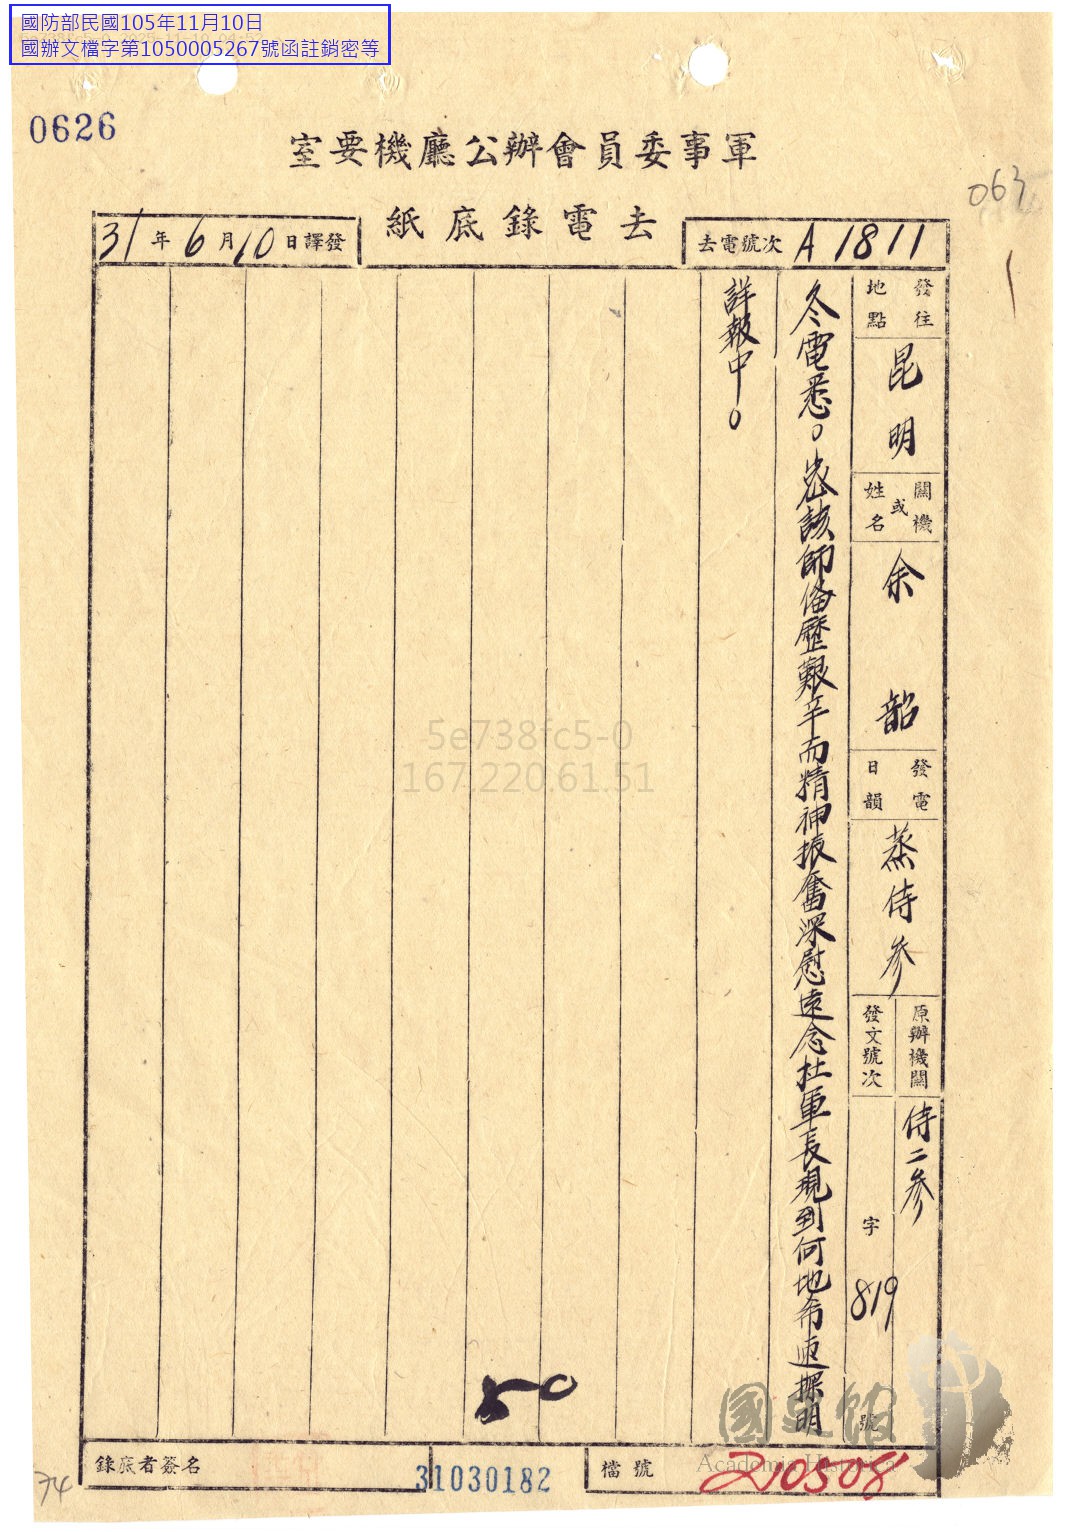 國防部民國105年11月10日
國辦文檔字第1050005267號函註銷密等
0626
063
室要機廳公辦會員委事軍
紙底錄電去
去電號次 A 1811
31年6月10日譯發
發往地點
昆明
關機或姓名
余韶
發電日韻
蒸侍參
原辦機關
侍二參
發文號次
字819號
冬電悉。悉該師備歷艱辛而精神振奮深慰遠念杜軍長現到何地希速探明
詳報中。
5e738fc5-0
167.220.61.51
50
國史館
Academia Historica
錄底者簽名
31030182
檔號
210508
74